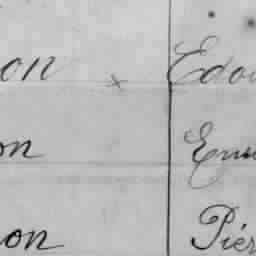 on × Edou
on Ern
on Pier